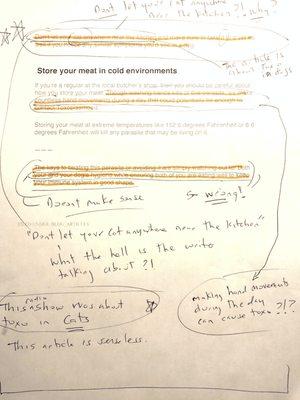 Dont let your cat anywhere
near the kitchen?! why?
Don't let your cat anywhere near the kitchen
this article is
about tips
in dogs
Store your meat in cold environments
If you're a regular at the local butcher's shop, then you should be careful about
how you store your meat.
hand movements during a day that could potentially be enough to
Storing your meat at extreme temperatures like 152.6 degrees Fahrenheit or 6.6
degrees Fahrenheit will kill any parasite that may be living on it.
The keys to beating this parasite or avoiding it are simply watching out for both
your and your dog's hygiene while ensuring both of you are eating well to keep
your immune system in good shape.
Doesnt make sense
So wrong!
BLOG, ARTICLES
"Dont let your cat anywhere near the kitchen"
what the hell is the write
talking about?!
This radio show was about
toxo in Cats
This article is senseless.
making hand movements
during the day
can cause toxo?!?